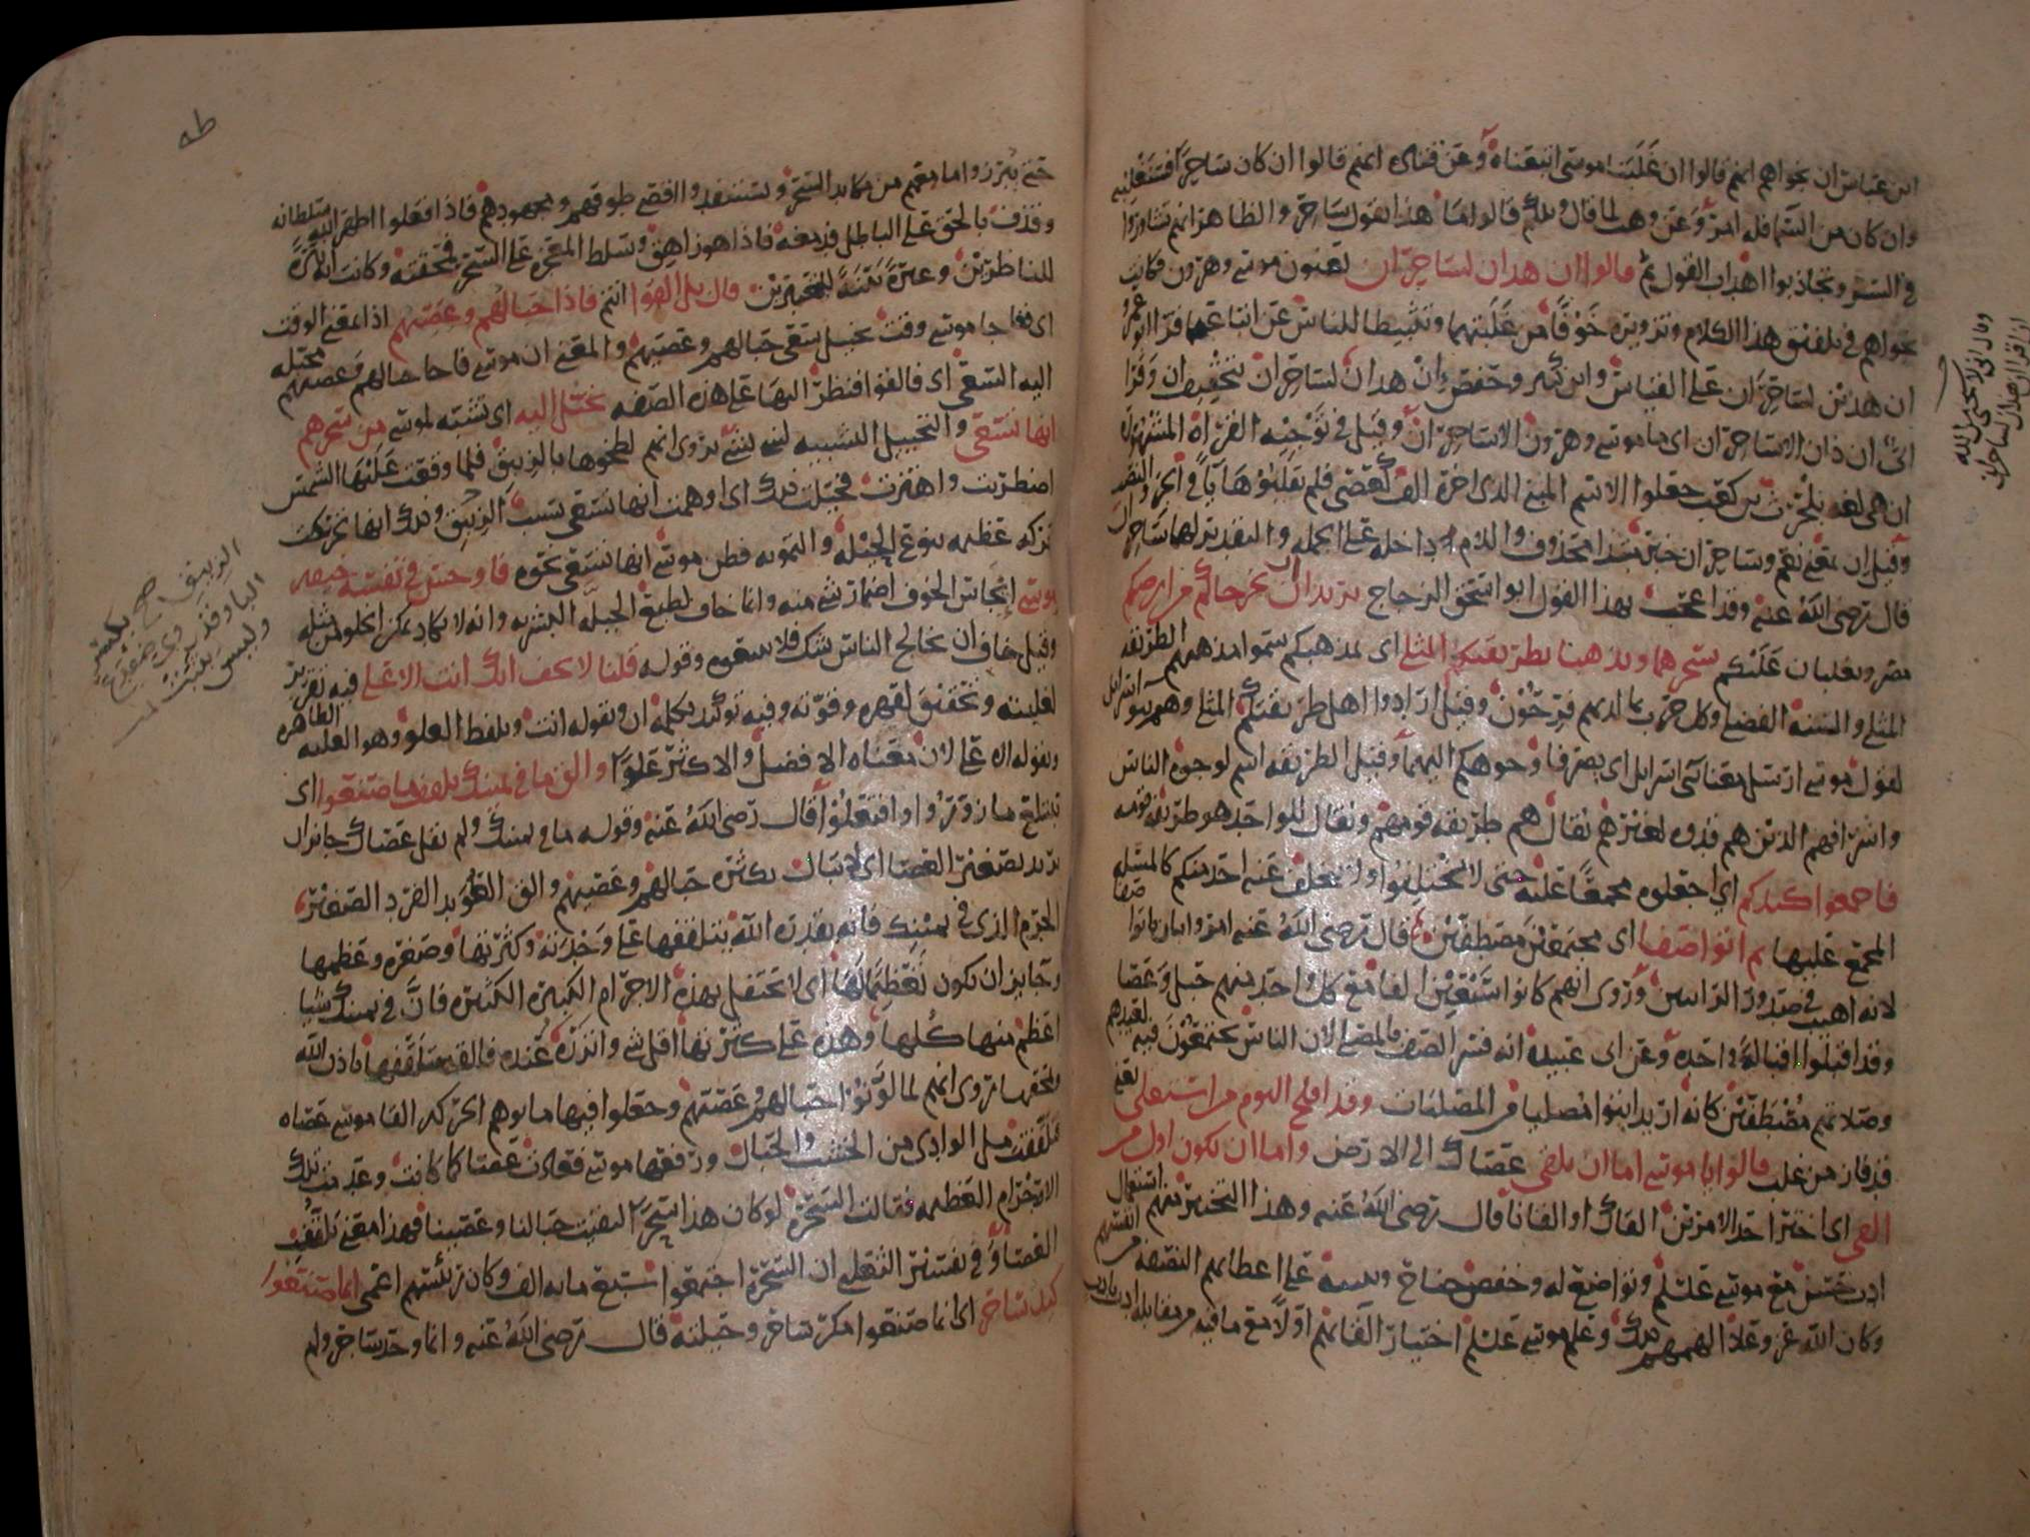 ابن عباس ان نجواهم انهم قالوا ان غلبنا موسى اتبعناه وعن قتادة انهم قالوا ان كان ساحرا فسنغلبه
وان كان من السماء فله امر وعن وهب لما قال ويلكم قالوا ما هذا بقول ساحر والظاهر انهم تشاوروا
في السر وتجاذبوا اهداب القول ثم قالوا ان هذان لساحران يعنون موسى وهرون فكانت
نجواهم في تلفيق هذا الكلام وتزويره خوفا من غلبتهما وتثبيطا للناس عن اتباعهما قرا ابو عمرو
ان هذين لساحران على القياس وابن كثير وحفص ان هذان لساحران بتخفيف ان وقرا
ابي ان ذان الا ساحران اي ما موسى وهرون الا ساحران وقيل في توجيه القراة المشهورة
ان هي لغة بلحرث بن كعب جعلوا الاسم المبني الذي اخره الف كعصى فلم يقلبوها يآ في الجر والنصب
وقيل ان بمعنى نعم وساحران خبر مبتدا محذوف واللام داخلة على الجملة والتقدير لهما ساحران
قال رضى الله عنه وقد اعجب بهذا القول ابو اسحق الزجاج يريدان ان يخرجاكم من ارضكم
مصر ويغلبان عليكم بسحرهما ويذهبا بطريقتكم المثلى اي بمذهبكم سموا مذهبهم الطريقة
المثلى والسنة الفضلى وكل حزب بما لديهم فرحون وقيل ارادوا اهل طريقتكم المثلى وهم بنو اسرائل
لقول موسى ارسل معنا بنى اسرايل اي بصرفا وجوهكم اليهما وقيل الطريقة اسم لوجوه الناس
واشرافهم الذين هم قدوة لغيرهم يقال هم طريقة قومهم ويقال للواحد هو طريقة قومه
فاجمعوا كيدكم اي اجعلوه مجمعا عليه حتى لا تختلفوا ولا يتخلف عنه احد منكم كالمسئلة
المجمع عليها ثم ائتوا صفا اي مجتمعين مصطفين قال رضى الله عنه امروا بان ياتوا صفا
لانه اهيب في صدور الرائين وروى انهم كانوا سبعين الفا مع كل واحد منهم حبل وعصا
وقد اقبلوا اقبالة واحدة وعن ابي عبيدة انه فسر الصف بالمصلى لان الناس يجتمعون فيه لعيدهم
وصلاتهم مصطفين كانه اريد ايتوا مصليا من المصليات وقد افلح اليوم من استعلى يعنى
قد فاز من غلب قالوا يا موسى اما ان تلقى عصاك الى الارض واما ان نكون اول من
القى اى اختر احد الامرين القاك او القانا قال رضى الله عنه وهذا التخيير منهم استعمال
ادب حسن مع موسى علسلم وتواضع له وخفض جناح وتنبيه على اعطائهم النصفة من انفسهم
وكان الله عز وعلا الهمهم ذلك وعلم موسى علسلم اختيار القائهم اولا مع ما فيه من مقابلة ادب بادب
وقال ابى لا يحل الله
ان اقرا ان هذان لساحران
طه
حتى يبرزوا ما معهم من مكايد السحر ويستنفدوا اقصى طوقهم ومجهودهم فاذا فعلوا اظهر الله سلطانه
وقذف بالحق على الباطل فدمغه فاذا هو زاهق وسلط المعجزة على السحر فمحقته وكانت اية نيرة
للناظرين وعبرة بينة للمعتبرين قال بل القوا انتم فاذا حبالهم وعصيهم اذا بمعنى الوقت
اى ففاجا موسى وقت تخيل سعى حبالهم وعصيهم والمعنى ان موسى فاجا حبالهم وعصيهم مخيلة
اليه السعى اى فالقوا فنظر اليها على هذه الصفة يخيل اليه اى تشبه لموسى من سحرهم
انها تسعى والتخييل التشبيه لغير شئ يروى انهم لطخوها بالزيبق فلما وقعت عليها الشمس
اضطربت واهتزت فخيلت ذلك اى اوهمت انها تسعى بسبب الزيبق وذلك انها تحركت
حركة عظيمة بنوع الحيلة والتمويه فظن موسى انها تسعى نحوه فاوجس في نفسه خيفة
موسى ايجاس الخوف اضمار شئ منه وانما خاف لطبع الجبلة البشرية وانه لا يكاد يمكن الخلو من مثله
وقيل خاف ان يخالج الناس شك فلا يتبعوه وقوله قلنا لا تخف انك انت الاعلى فيه تقرير
لغلبته وتحقيق لقهره وقوته وفيه توكيد بكلمة ان وبقوله انت وبلفظ العلو وهو الغلبة الظاهرة
وبقوله الاعلى لان معناه الافضل والاكثر علوا والق ما في يمينك تلقف ما صنعوا اى
تبتلع ما زوروا وافتعلوا قال رضى الله عنه وقوله ما في يمينك ولم يقل عصاك جايز ان
يريد تصغير العصا اى لا تبال بكثرة حبالهم وعصيهم والق العويد الفرد الصغير
الجرم الذى في يمينك فانه بقدرة الله يتلقفها على وحدته وكثرتها وصغره وعظمها
وجايز ان يكون تعظيما لها اى لا تحتفل بهذه الاجرام الكبيرة الكثيرة فان في يمينك شيا
اعظم منها كلها وهذه على كثرتها اقل شئ وانزره عنده فالقه يتلقفها باذن الله
ويمحقها يروى انهم لما لونوا حبالهم وعصيهم وجعلوا فيها ما يوهم الحركة القا موسى عصاه
فتلقفت مل الوادى من الخشب والحبال ورفعها موسى فعادت عصا كما كانت وعدمت تلك
الاجرام العظيمة فقالت السحرة لو كان هذا سحرا لبقيت حبالنا وعصينا فهذا معنى تلقف
العصا وفي تفسير الثعلبي ان السحرة اجتمعوا سبعماية الف وكان رئيسهم اعمى انما صنعوا
كيد ساحر اى انما صنعوا مكر ساحر وحيلته قال رضى الله عنه وانما وحد ساحر ولم
الزيبق صح بكسر
البا وقد روى ضعيفا
وليس بثبت